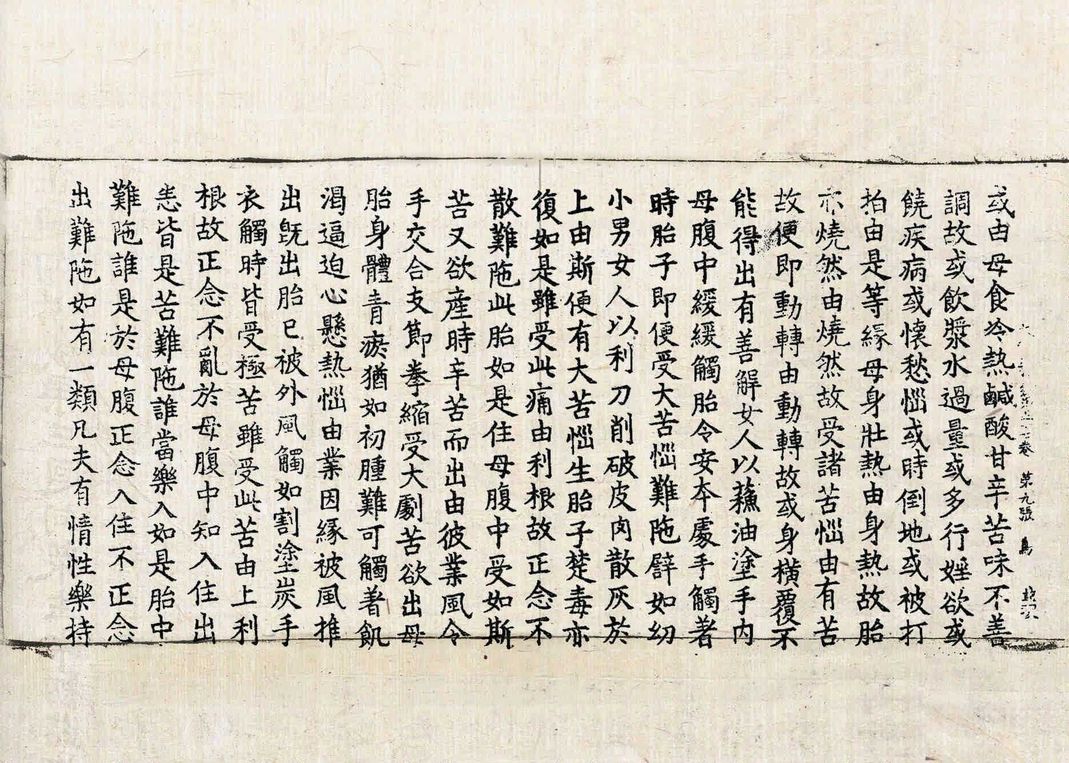 或由母食冷熱鹹酸甘辛苦味不善
調故或飲漿水過量或多行婬欲或
饒疾病或懷愁惱或時倒地或被打
拍由是等緣母身壯熱由身熱故胎
亦燒然由燒然故受諸苦惱由有苦
故便即動轉由動轉故或身橫覆不
能得出有善解女人以蘓油塗手內
母腹中緩緩觸胎令安本處手觸著
時胎子即便受大苦惱難陁譬如幼
小男女人以利刀削破皮肉散灰於
上由斯便有大苦惱生胎子楚毒亦
復如是雖受此痛由利根故正念不
散難陁此胎如是住母腹中受如斯
苦又欲產時辛苦而出由彼業風令
手交合支節拳縮受大劇苦欲出母
胎身體青瘀猶如初腫難可觸著飢
渴逼迫心懸熱惱由業因緣被風推
出既出胎已被外風觸如割塗炭手
衣觸時皆受極苦雖受此苦由上利
根故正念不亂於母腹中知入住出
悉皆是苦難陁誰當樂入如是胎中
難陁誰是於母腹正念入住不正念
出難陁如有一類凡夫有情性樂持
卷 第九張 鳥